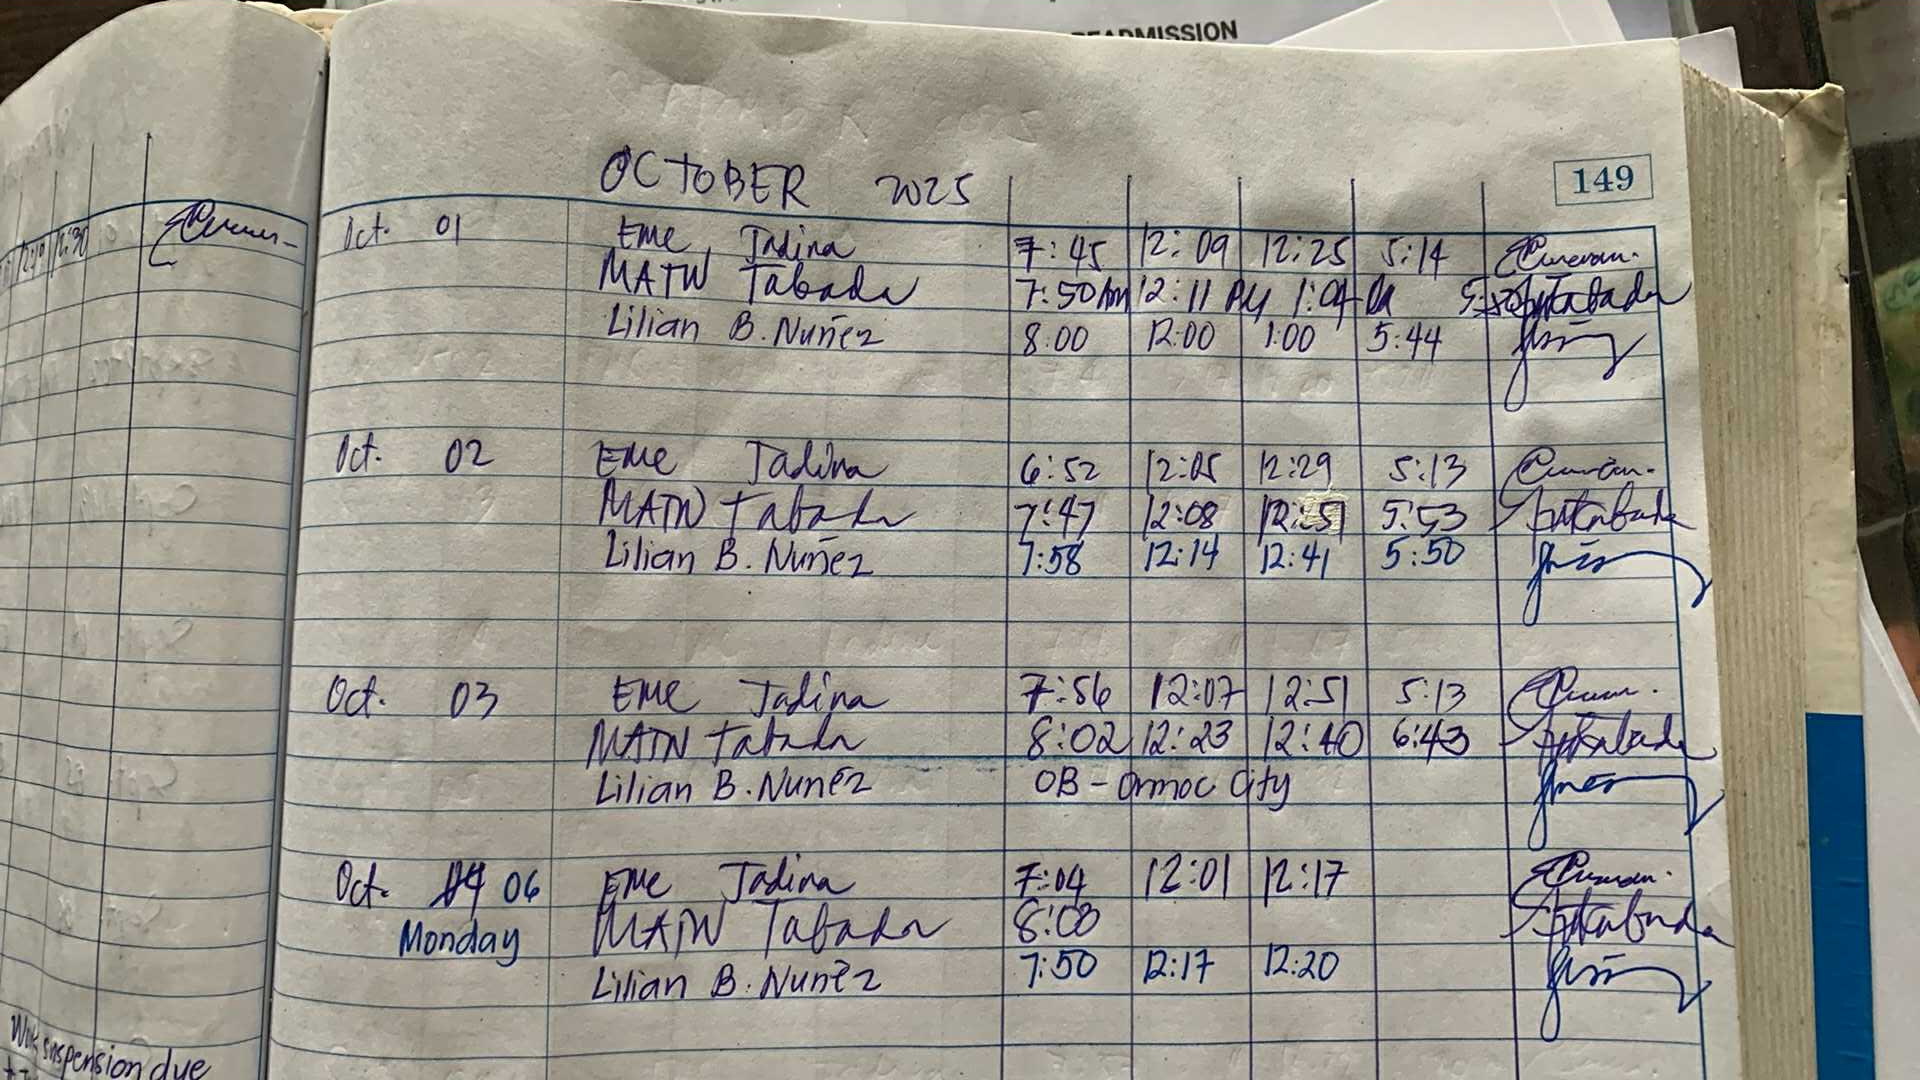 READMISSION
OCTOBER 2025
149
Oct. 01 EME Jadina 7:45 12:09 12:25 5:14
MATW Tabada 7:50 Am 12:11 PM 1:04
Lilian B. Nuñez 8:00 12:00 1:00 5:44
Oct. 02 EME Jadina 6:52 12:05 12:29 5:13
MATW Tabada 7:47 12:08 12:51 5:53
Lilian B. Nuñez 7:58 12:14 12:41 5:50
Oct. 03 EME Jadina 7:56 12:07 12:51 5:13
MATW Tabada 8:02 12:23 12:40 6:43
Lilian B. Nuñez OB - Ormoc City
Oct. 06 EME Jadina 7:04 12:01 12:17
Monday MATW Tabada 8:08
Lilian B. Nuñez 7:50 12:17 12:20
12:19 12:30
Work suspension due